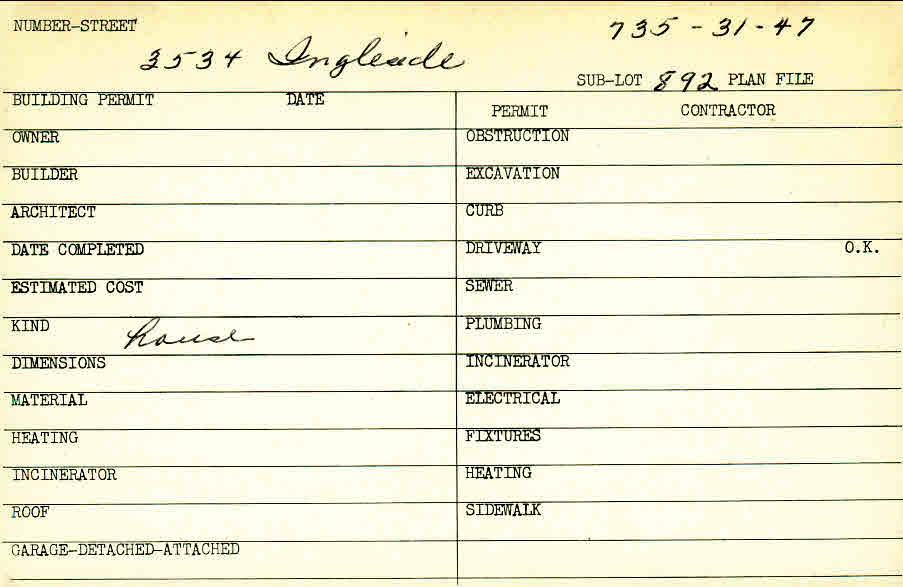 NUMBER-STREET 735-31-47
3534 Ingleside
SUB-LOT 892 PLAN FILE
BUILDING PERMIT DATE
PERMIT CONTRACTOR
OWNER OBSTRUCTION
BUILDER EXCAVATION
ARCHITECT CURB
DATE COMPLETED DRIVEWAY O.K.
ESTIMATED COST SEWER
KIND house PLUMBING
DIMENSIONS INCINERATOR
MATERIAL ELECTRICAL
HEATING FIXTURES
INCINERATOR HEATING
ROOF SIDEWALK
GARAGE-DETACHED-ATTACHED